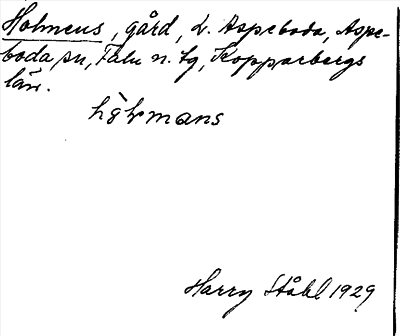 Holmens, gård, L. Aspeboda, Aspe-
boda sn, Falu n. tg, Kopparbergs
län.
Harry Ståhl 1929